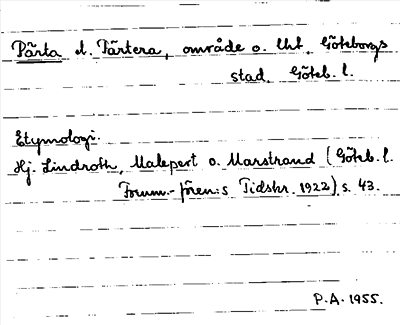 Pärta el. Pärtera, område o. lht, Göteborgs
stad. Göteb. l.
Etymologi.
Hj. Lindroth, Malepert o. Marstrand (Göteb. l.
Fornm.-fören:s Tidskr. 1922) s. 43.
P.A. 1955.